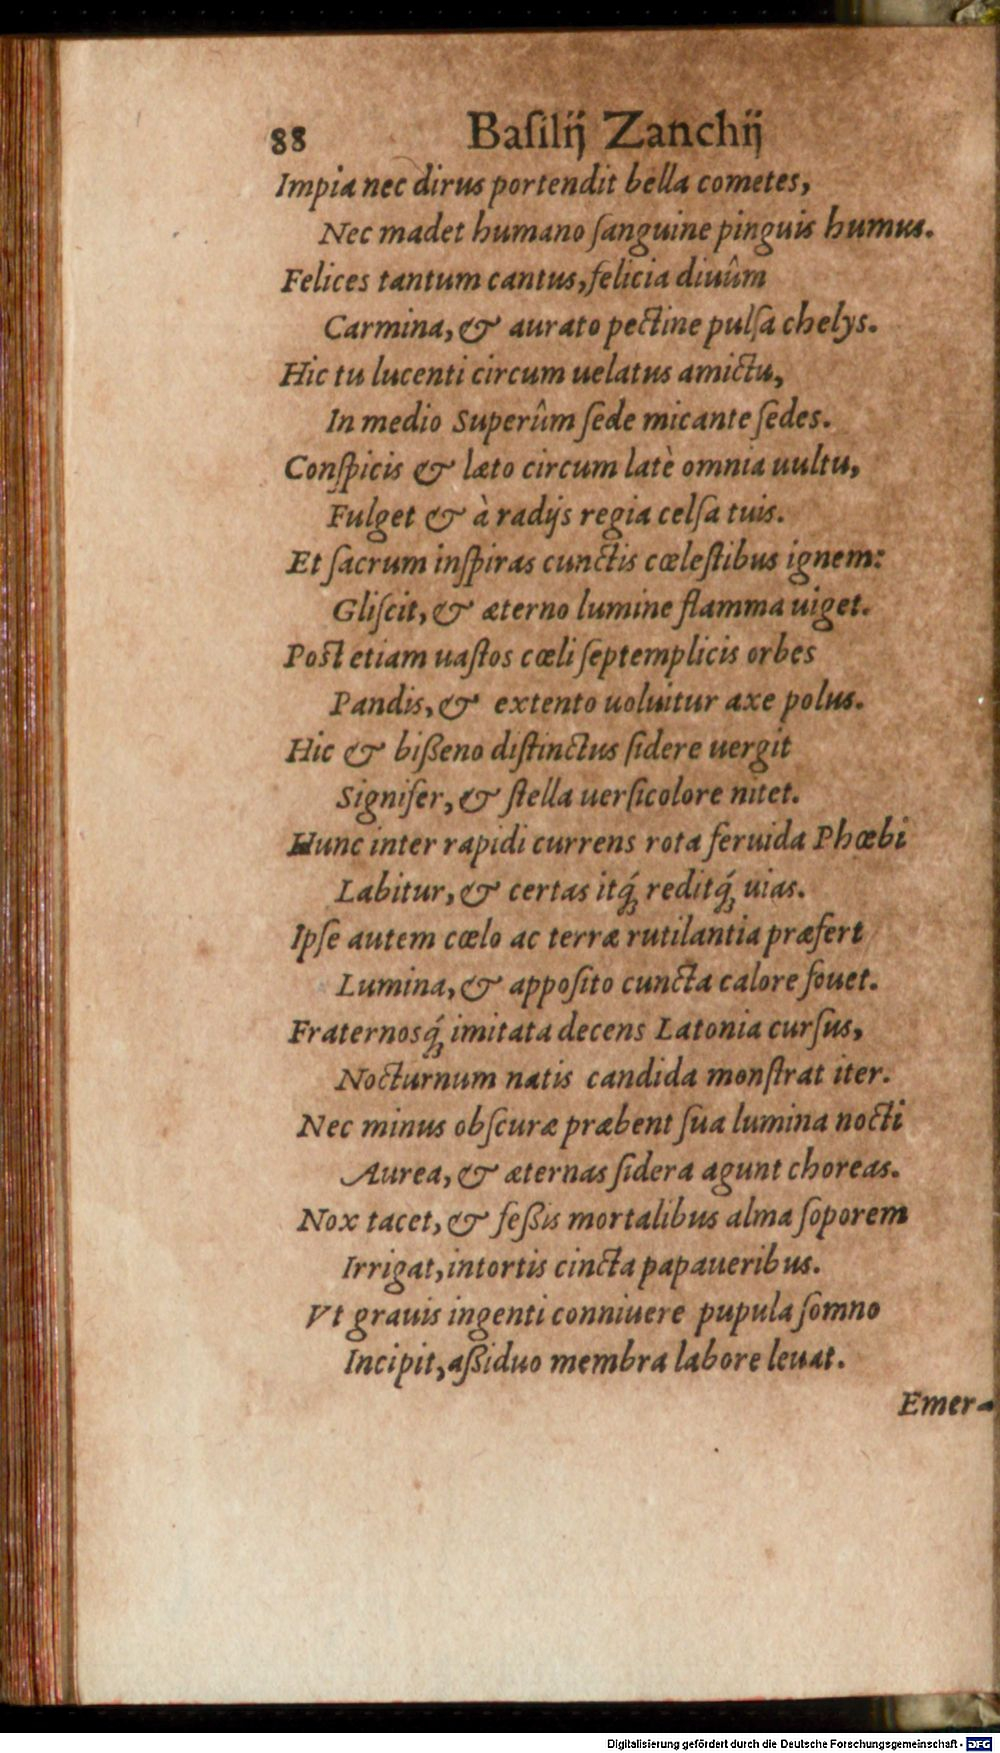 88 Baſilij Zanchij
Impia nec dirus portendit bella cometes,
Nec madet humano ſanguine pinguis humus.
Felices tantum cantus, felicia diuûm
Carmina, & aurato pectine pulſa chelys.
Hic tu lucenti circum uelatus amictu,
In medio Superûm ſede micante ſedes.
Conſpicis & læto circum latè omnia uultu,
Fulget & à radijs regia celſa tuis.
Et ſacrum inſpiras cunctis cœleſtibus ignem:
Gliſcit, & æterno lumine flamma uiget.
Poſt etiam uaſtos cœli ſeptemplicis orbes
Pandis, & extento uoluitur axe polus.
Hic & bißeno diſtinctus ſidere uergit
Signifer, & ſtella uerſicolore nitet.
Hunc inter rapidi currens rota feruida Phœbi
Labitur, & certas itq́; reditq́; uias.
Ipſe autem cœlo ac terræ rutilantia præfert
Lumina, & appoſito cuncta calore fouet.
Fraternosq́; imitata decens Latonia curſus,
Nocturnum natis candida monſtrat iter.
Nec minus obſcuræ præbent ſua lumina nocti
Aurea, & æternas ſidera agunt choreas.
Nox tacet, & feßis mortalibus alma ſoporem
Irrigat, intortis cincta papaueribus.
Vt grauis ingenti conniuere pupula ſomno
Incipit, aßiduo membra labore leuat.
Emer-
Digitalisierung gefördert durch die Deutsche Forschungsgemeinschaft - DFG